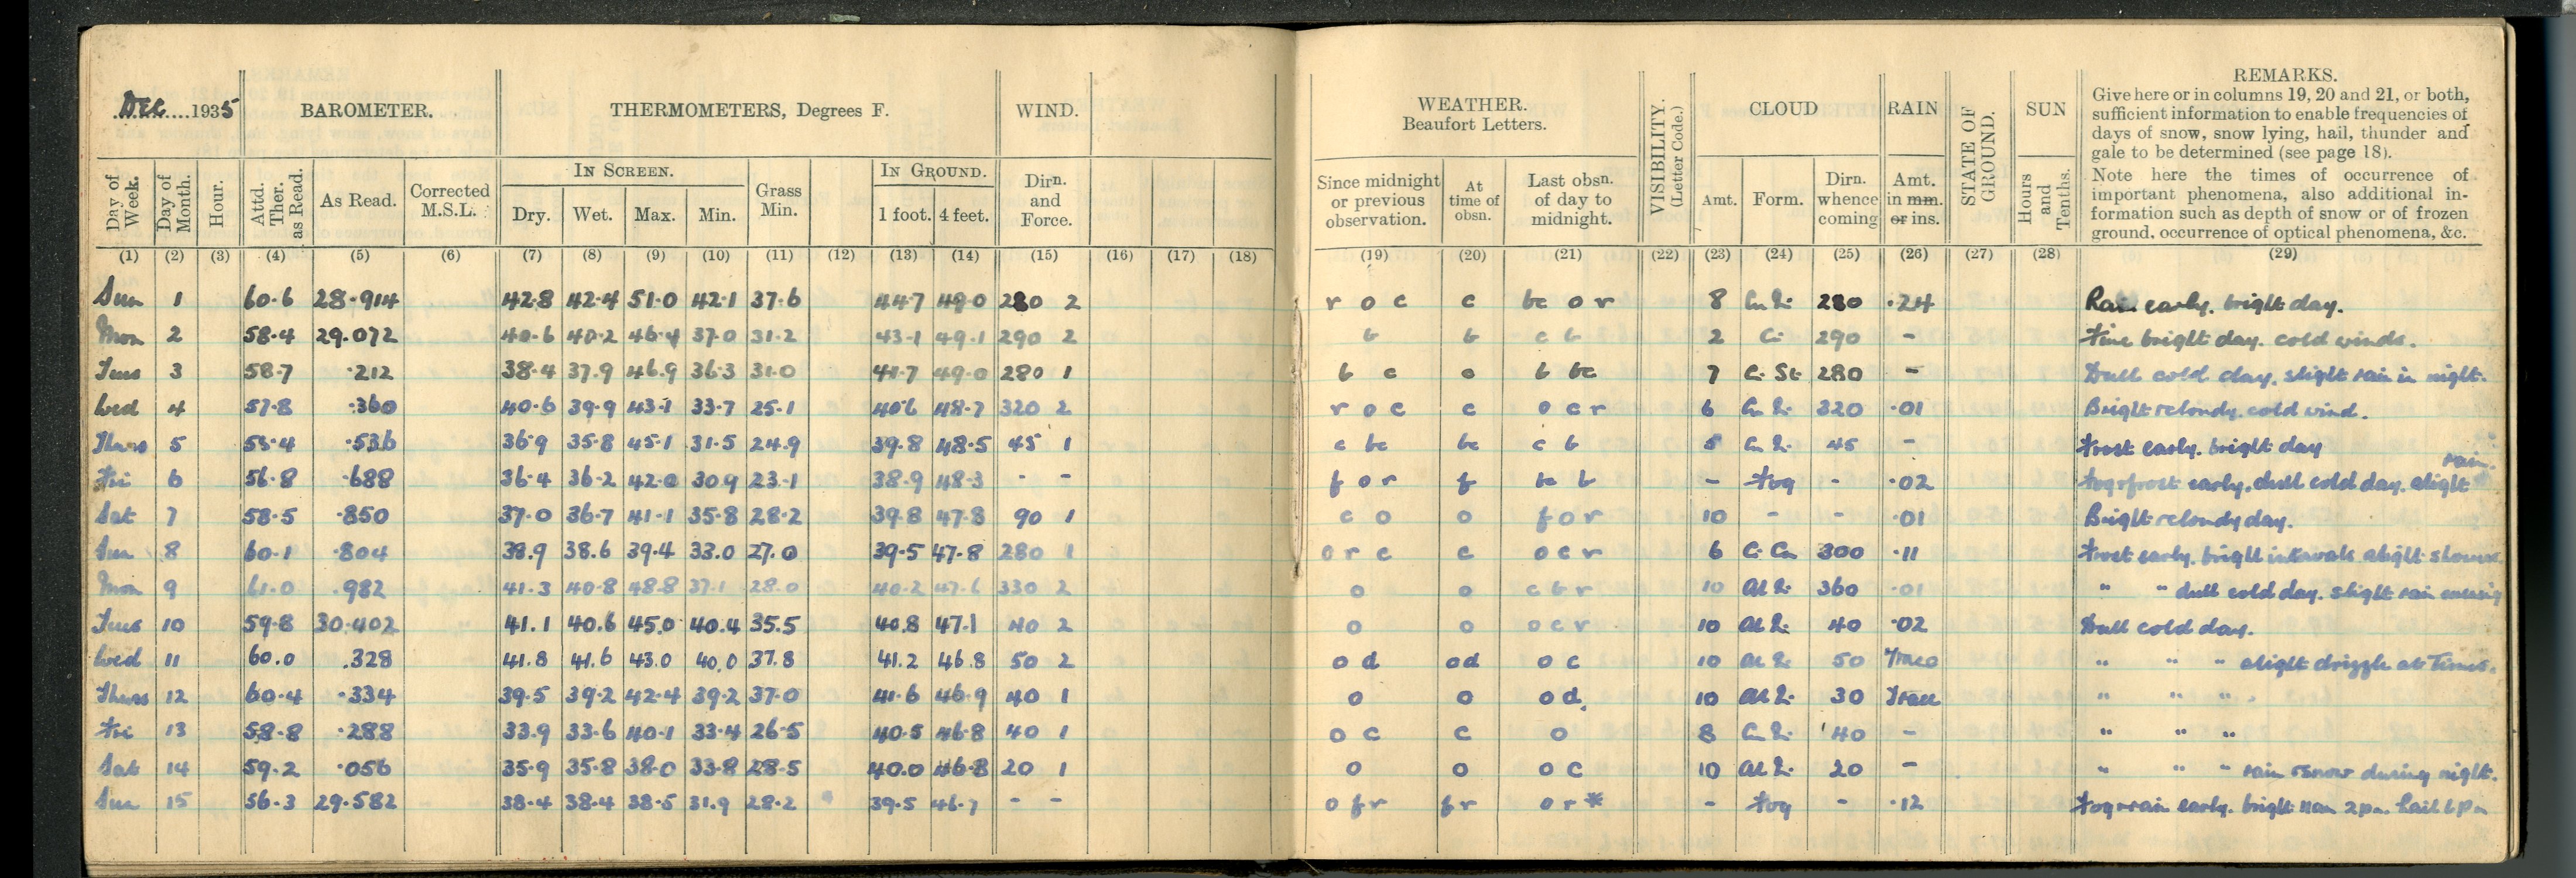 DEC 1935 BAROMETER. THERMOMETERS, Degrees F. WIND.
In Screen. In Ground.
Day of Week. Day of Month. Hour. Attd. Ther. as Read. As Read. Corrected M.S.L. Dry. Wet. Max. Min. Grass Min. 1 foot. 4 feet. Dirn. and Force.
(1) (2) (3) (4) (5) (6) (7) (8) (9) (10) (11) (12) (13) (14) (15) (16) (17) (18)
Sun 1 60.6 28.914 42.8 42.4 51.0 42.1 37.6 44.7 49.0 280 2
Mon 2 58.4 29.072 40.6 40.2 46.4 37.0 31.2 43.1 49.1 290 2
Tues 3 58.7 .212 38.4 37.9 46.9 36.3 31.0 41.7 49.0 280 1
Wed 4 57.8 .360 40.6 39.9 43.1 33.7 25.1 40.6 48.7 320 2
Thurs 5 55.4 .536 36.9 35.8 45.1 31.5 24.9 39.8 48.5 45 1
Fri 6 56.8 .688 36.4 36.2 42.0 30.9 23.1 38.9 48.3 - -
Sat 7 58.5 .850 37.0 36.7 41.1 35.8 28.2 39.8 47.8 90 1
Sun 8 60.1 .804 38.9 38.6 39.4 33.0 27.0 39.5 47.8 280 1
Mon 9 61.0 .982 41.3 40.8 48.8 37.1 28.0 40.2 47.6 330 2
Tues 10 59.8 30.402 41.1 40.6 45.0 40.4 35.5 40.8 47.1 40 2
Wed 11 60.0 .328 41.8 41.6 43.0 40.0 37.8 41.2 46.8 50 2
Thurs 12 60.4 .334 39.5 39.2 42.4 39.2 37.0 41.6 46.9 40 1
Fri 13 58.8 .288 33.9 33.6 40.1 33.4 26.5 40.5 46.8 40 1
Sat 14 59.2 .056 35.9 35.8 38.0 33.8 28.5 40.0 46.8 20 1
Sun 15 56.3 29.582 38.4 38.4 38.5 31.9 28.2 39.5 46.7 - -
WEATHER. Beaufort Letters. VISIBILITY. (Letter Code.) CLOUD RAIN STATE OF GROUND. SUN REMARKS.
Give here or in columns 19, 20 and 21, or both,
sufficient information to enable frequencies of
days of snow, snow lying, hail, thunder and
gale to be determined (see page 18).
Note here the times of occurrence of
important phenomena, also additional in-
formation such as depth of snow or of frozen
ground, occurrence of optical phenomena, &c.
Since midnight or previous observation. At time of obsn. Last obsn. of day to midnight. Amt. Form. Dirn. whence coming Amt. in mm. or ins. Hours and Tenths.
(19) (20) (21) (22) (23) (24) (25) (26) (27) (28) (29)
r o c c bc o r 8 280 .24 Rain early. bright day.
b b c b 2 Ci 290 - Fine bright day. cold winds.
b c o b bc 7 Ci St 280 - Dull cold day. slight rain in night.
r o c c o c r 6 320 .01 Bright & cloudy. cold wind.
c bc bc c b 5 45 - Frost early. bright day
f o r f bc b - Fog - .02 Fog & frost early. dull cold day. slight rain.
c o o f o r 10 - - .01 Bright & cloudy day.
o r c c o c r 6 Ci Cu 300 .11 Frost early. bright intervals slight showers
o o c b r 10 360 .01 " " dull cold day. slight rain evening
o o o c r 10 40 .02 Dull cold day.
o d od o c 10 50 Trace " " " slight drizzle at Times.
o o o d. 10 30 Trace " " "
o c c o 8 40 - " " "
o o o c 10 20 - " " " rain & snow during night.
o f r f r o r * - Fog - .12 Fog & rain early. bright 11am 2pm. hail 6pm